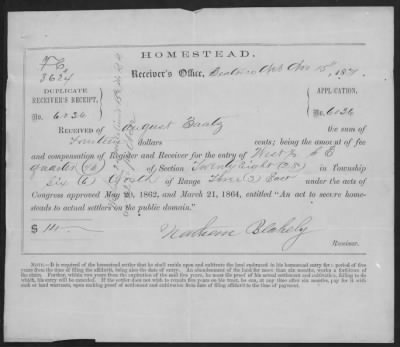 HOMESTEAD.
F.C.
3624
Receiver's Office, Beatrice Neb Nov 15th, 1871.
DUPLICATE
RECEIVER'S RECEIPT,
No. 6036
APPLICATION,
No. 6036
RECEIVED OF August Baatz the sum of
Fourteen dollars cents; being the amount of fee
and compensation of Register and Receiver for the entry of West ½ N E
quarter (¼) of Section Twenty Eight (28) in Township
Six (6) North of Range Three (3) East under the acts of
Congress approved May 20, 1862, and March 21, 1864, entitled "An act to secure homesteads
to actual settlers on the public domain."
$ 14
Nathan Blakely
Receiver.
NOTE.—It is required of the homestead settler that he shall reside upon and cultivate the land embraced in his homestead entry for a period of five
years from the time of filing the affidavit, being also the date of entry. An abandonment of the land for more than six months, works a forfeiture of
the claim. Further, within two years from the expiration of the said five years, he must file proof of his actual settlement and cultivation, failing to do
which, his entry will be cancelled. If the settler does not wish to remain five years on his tract, he can, at any time after six months, pay for it with
cash or land warrants, upon making proof of settlement and cultivation from date of filing affidavit to the time of payment.